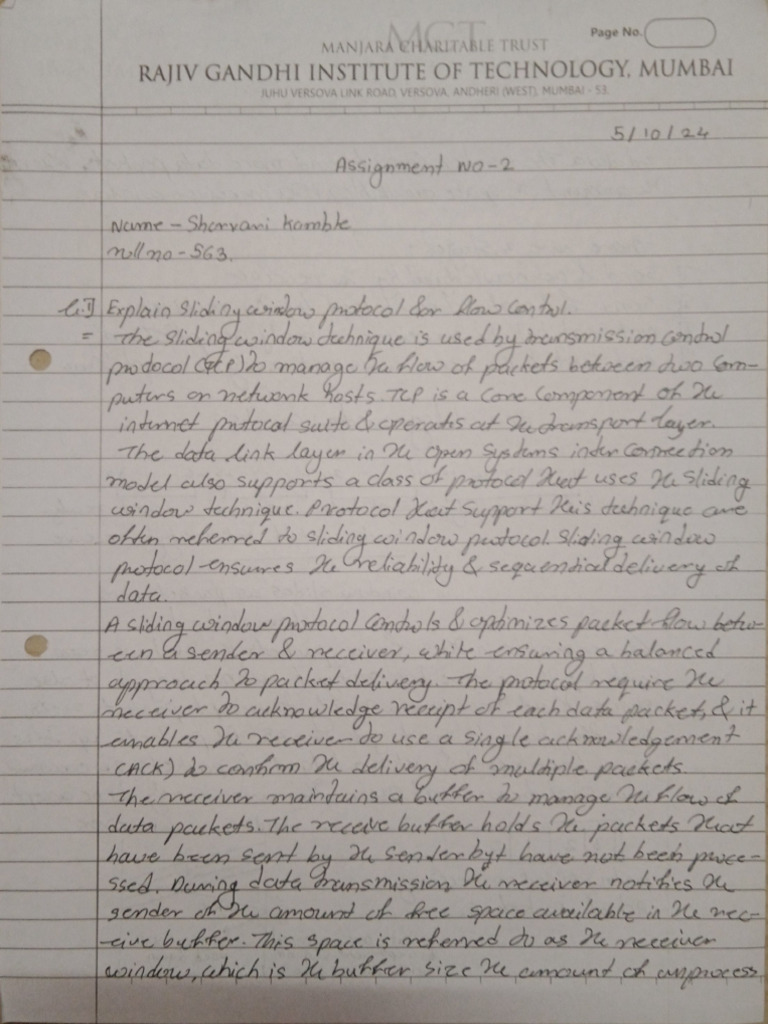 MCT
Page No.
MANJARA CHARITABLE TRUST
RAJIV GANDHI INSTITUTE OF TECHNOLOGY, MUMBAI
JUHU VERSOVA LINK ROAD, VERSOVA, ANDHERI (WEST), MUMBAI - 53.
5/10/24
Assignment NO-2
Name - Sharvari Kamble
roll no - 563.
Explain sliding window protocol for flow control.
= The sliding window technique is used by transmission control
protocol (TCP) to manage the flow of packets between two com-
puters or network hosts. TCP is a core component of the
internet protocol suite & operates at the transport layer.
The data link layer in the open systems inter connection
model also supports a class of protocol that uses the sliding
window technique. Protocol that support this technique are
often referred to sliding window protocol. Sliding window
protocol ensures the reliability & sequential delivery of
data.
A sliding window protocol controls & optimizes packet flow betw-
een a sender & receiver, while ensuring a balanced
approach to packet delivery. The protocol require the
receiver to acknowledge receipt of each data packet, & it
enables the receiver to use a single acknowledgement
(ACK) to confirm the delivery of multiple packets.
The receiver maintains a buffer to manage the flow of
data packets. The receive buffer holds the packets that
have been sent by the sender byt have not been proce-
ssed. During data transmission the receiver notifies the
sender of the amount of free space available in the rec-
-eive buffer. This space is referred to as the receiver
window, which is the buffer size the amount of unprocess